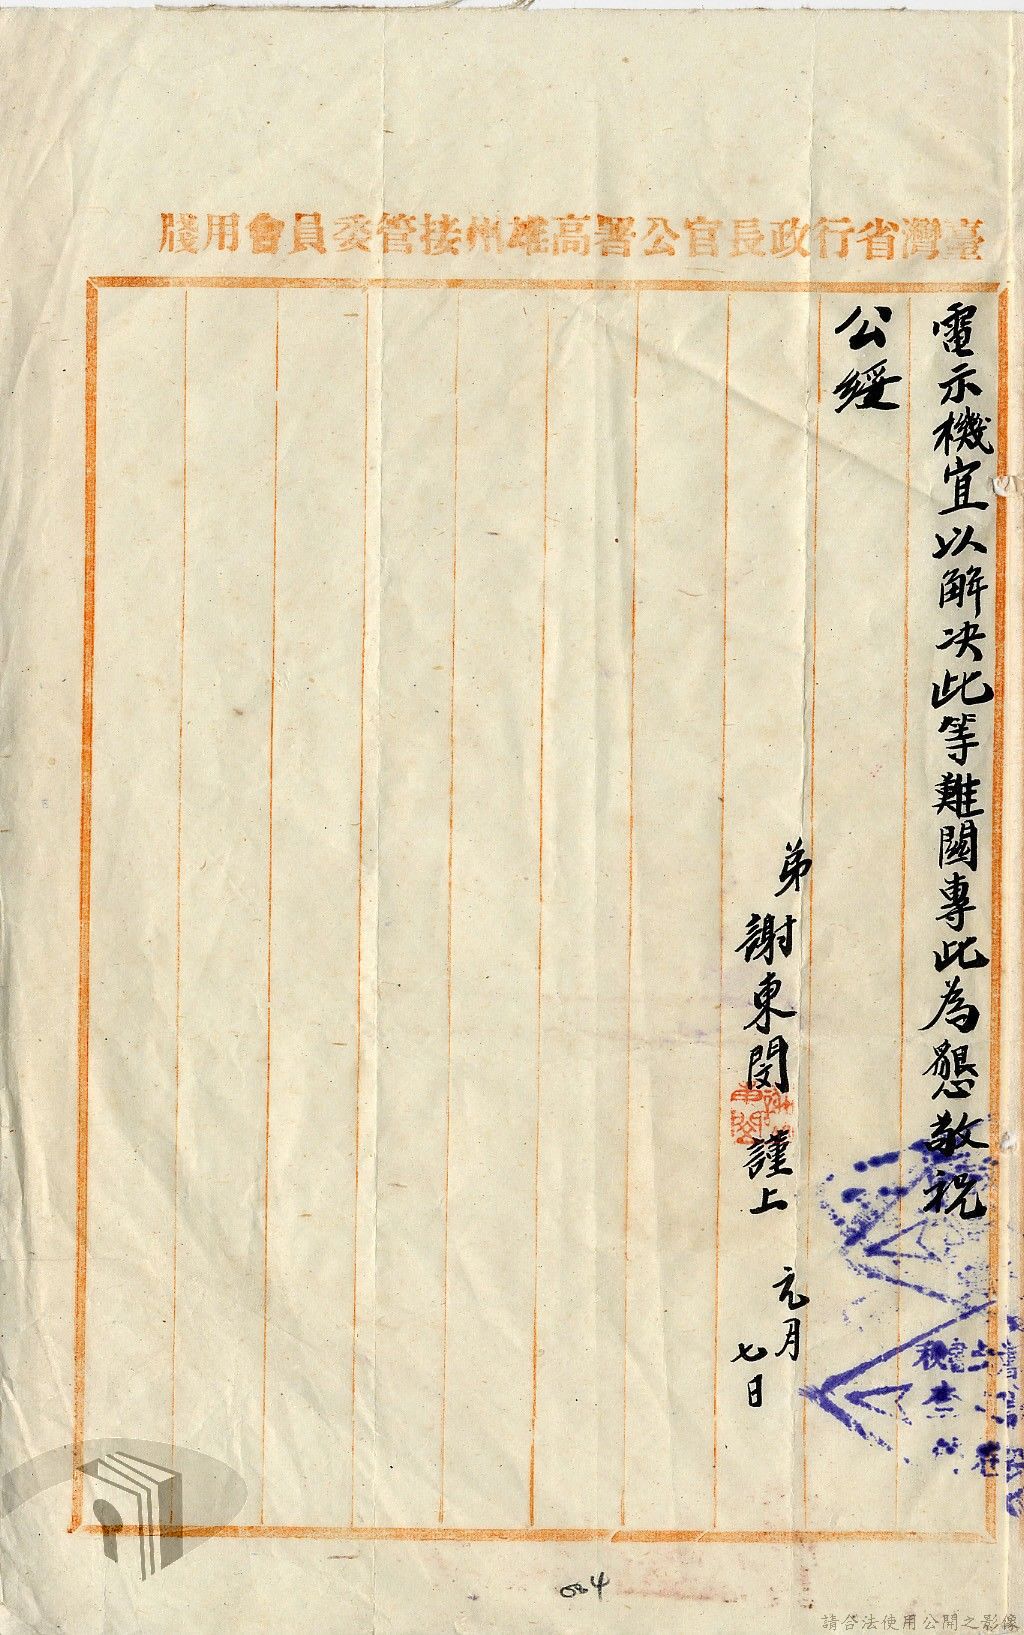 臺灣省行政長官公署高雄州接管委員會用牋
電示機宜以解决此等難關專此為懇敬祝
公綏
弟謝東閔謹上
元月七日
684
請合法使用公開之影像